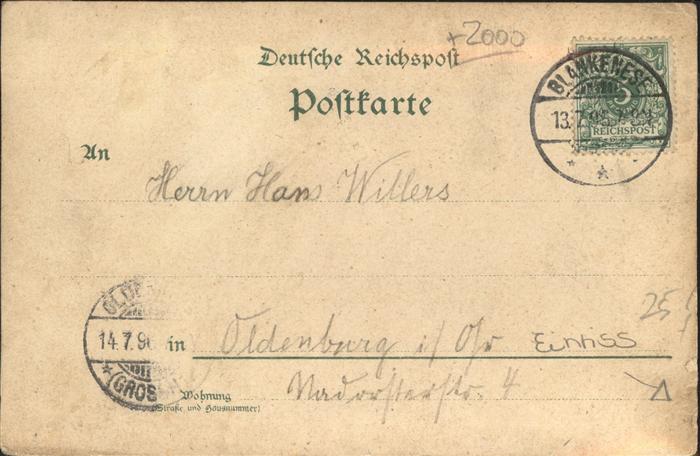 +2000
Deutsche Reichspost
Postkarte
BLANKENESE
13.7.96
REICHSPOST
An
Herrn Hans Willers
14.7.96
(GROSS
in
Oldenburg i/ Gr.
Einriss
25
Nadorsterstr. 4
Wohnung
(Straße und Hausnummer)